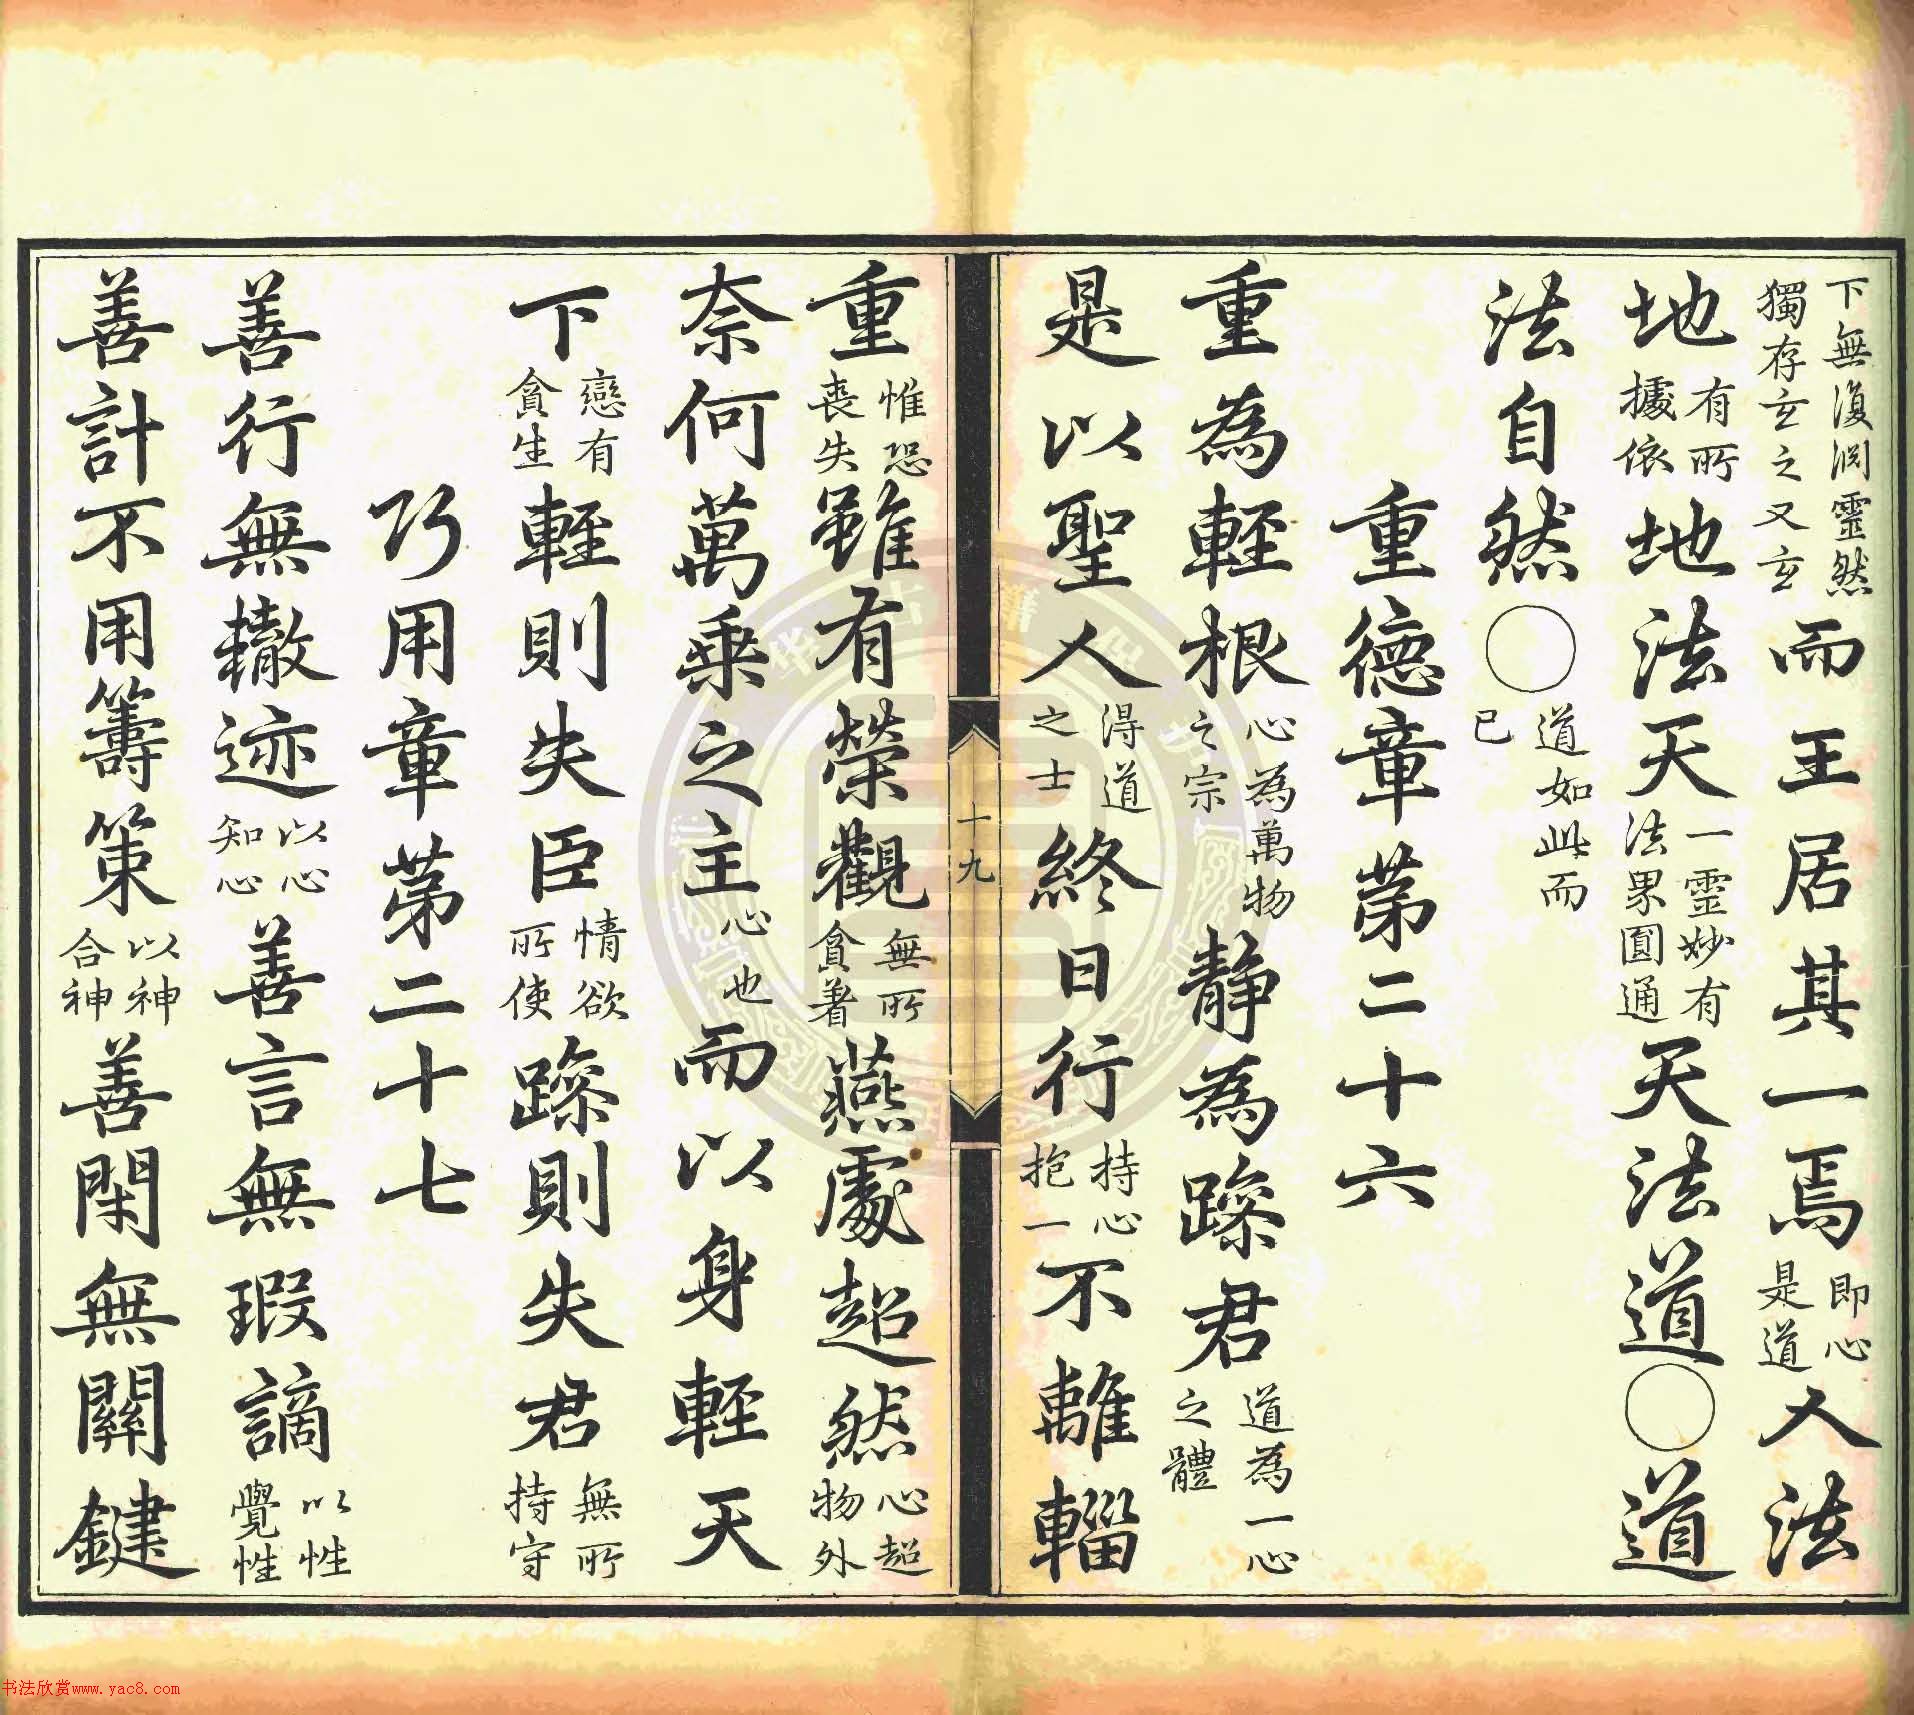 下無復渕靈然獨存玄之又玄而王居其一焉即心是道人法
地有所據依地法天一靈妙有法界圓通天法道〇道
法自然〇道如此而已
重德章第二十六
重為輕根心為萬物之宗靜為躁君道為一心之體
是以聖人得道之士終日行持心抱一不離輜
十九
重惟恐喪失雖有榮觀無所貪著燕處超然心超物外
奈何萬乘之主心也而以身輕天
下戀有貪生輕則失臣情欲所使躁則失君無所持守
巧用章第二十七
善行無轍迹以心知心善言無瑕謫以性覺性
善計不用籌策以神合神善閉無關鍵
书法欣赏www.yac8.com